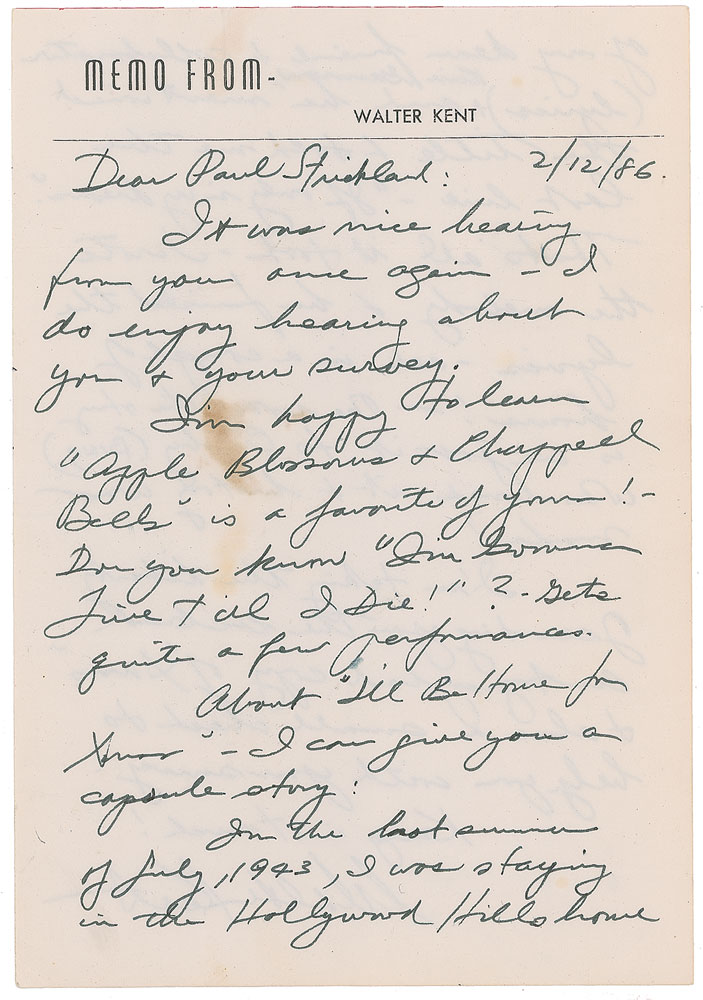 MEMO FROM-
WALTER KENT
Dear Paul Strickland: 2/12/86.
It was nice hearing
from you once again - I
do enjoy hearing about
you & your survey.
I'm happy to learn
"Apple Blossoms & Chappel
Bells" is a favorite of yours! -
Do you know "I'm Gonna
Live Til I Die!" ? - Gets
quite a few performances.
About "I'll Be Home for
Xmas" - I can give you a
capsule story:
In the hot summer
of July, 1943, I was staying
in the Hollywood Hills home